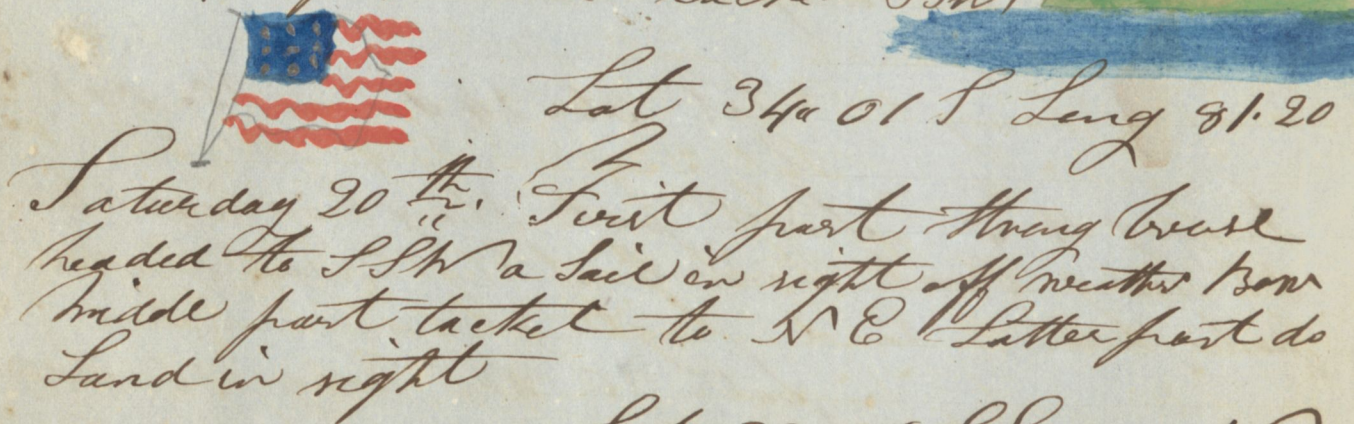 Lat 34" 01 S Long 81.20
Saturday 20th. First part Strong breese
headed to SSW a Sail in sight off weather Bow
middle part tacket to N E Latter part do
Land in sight